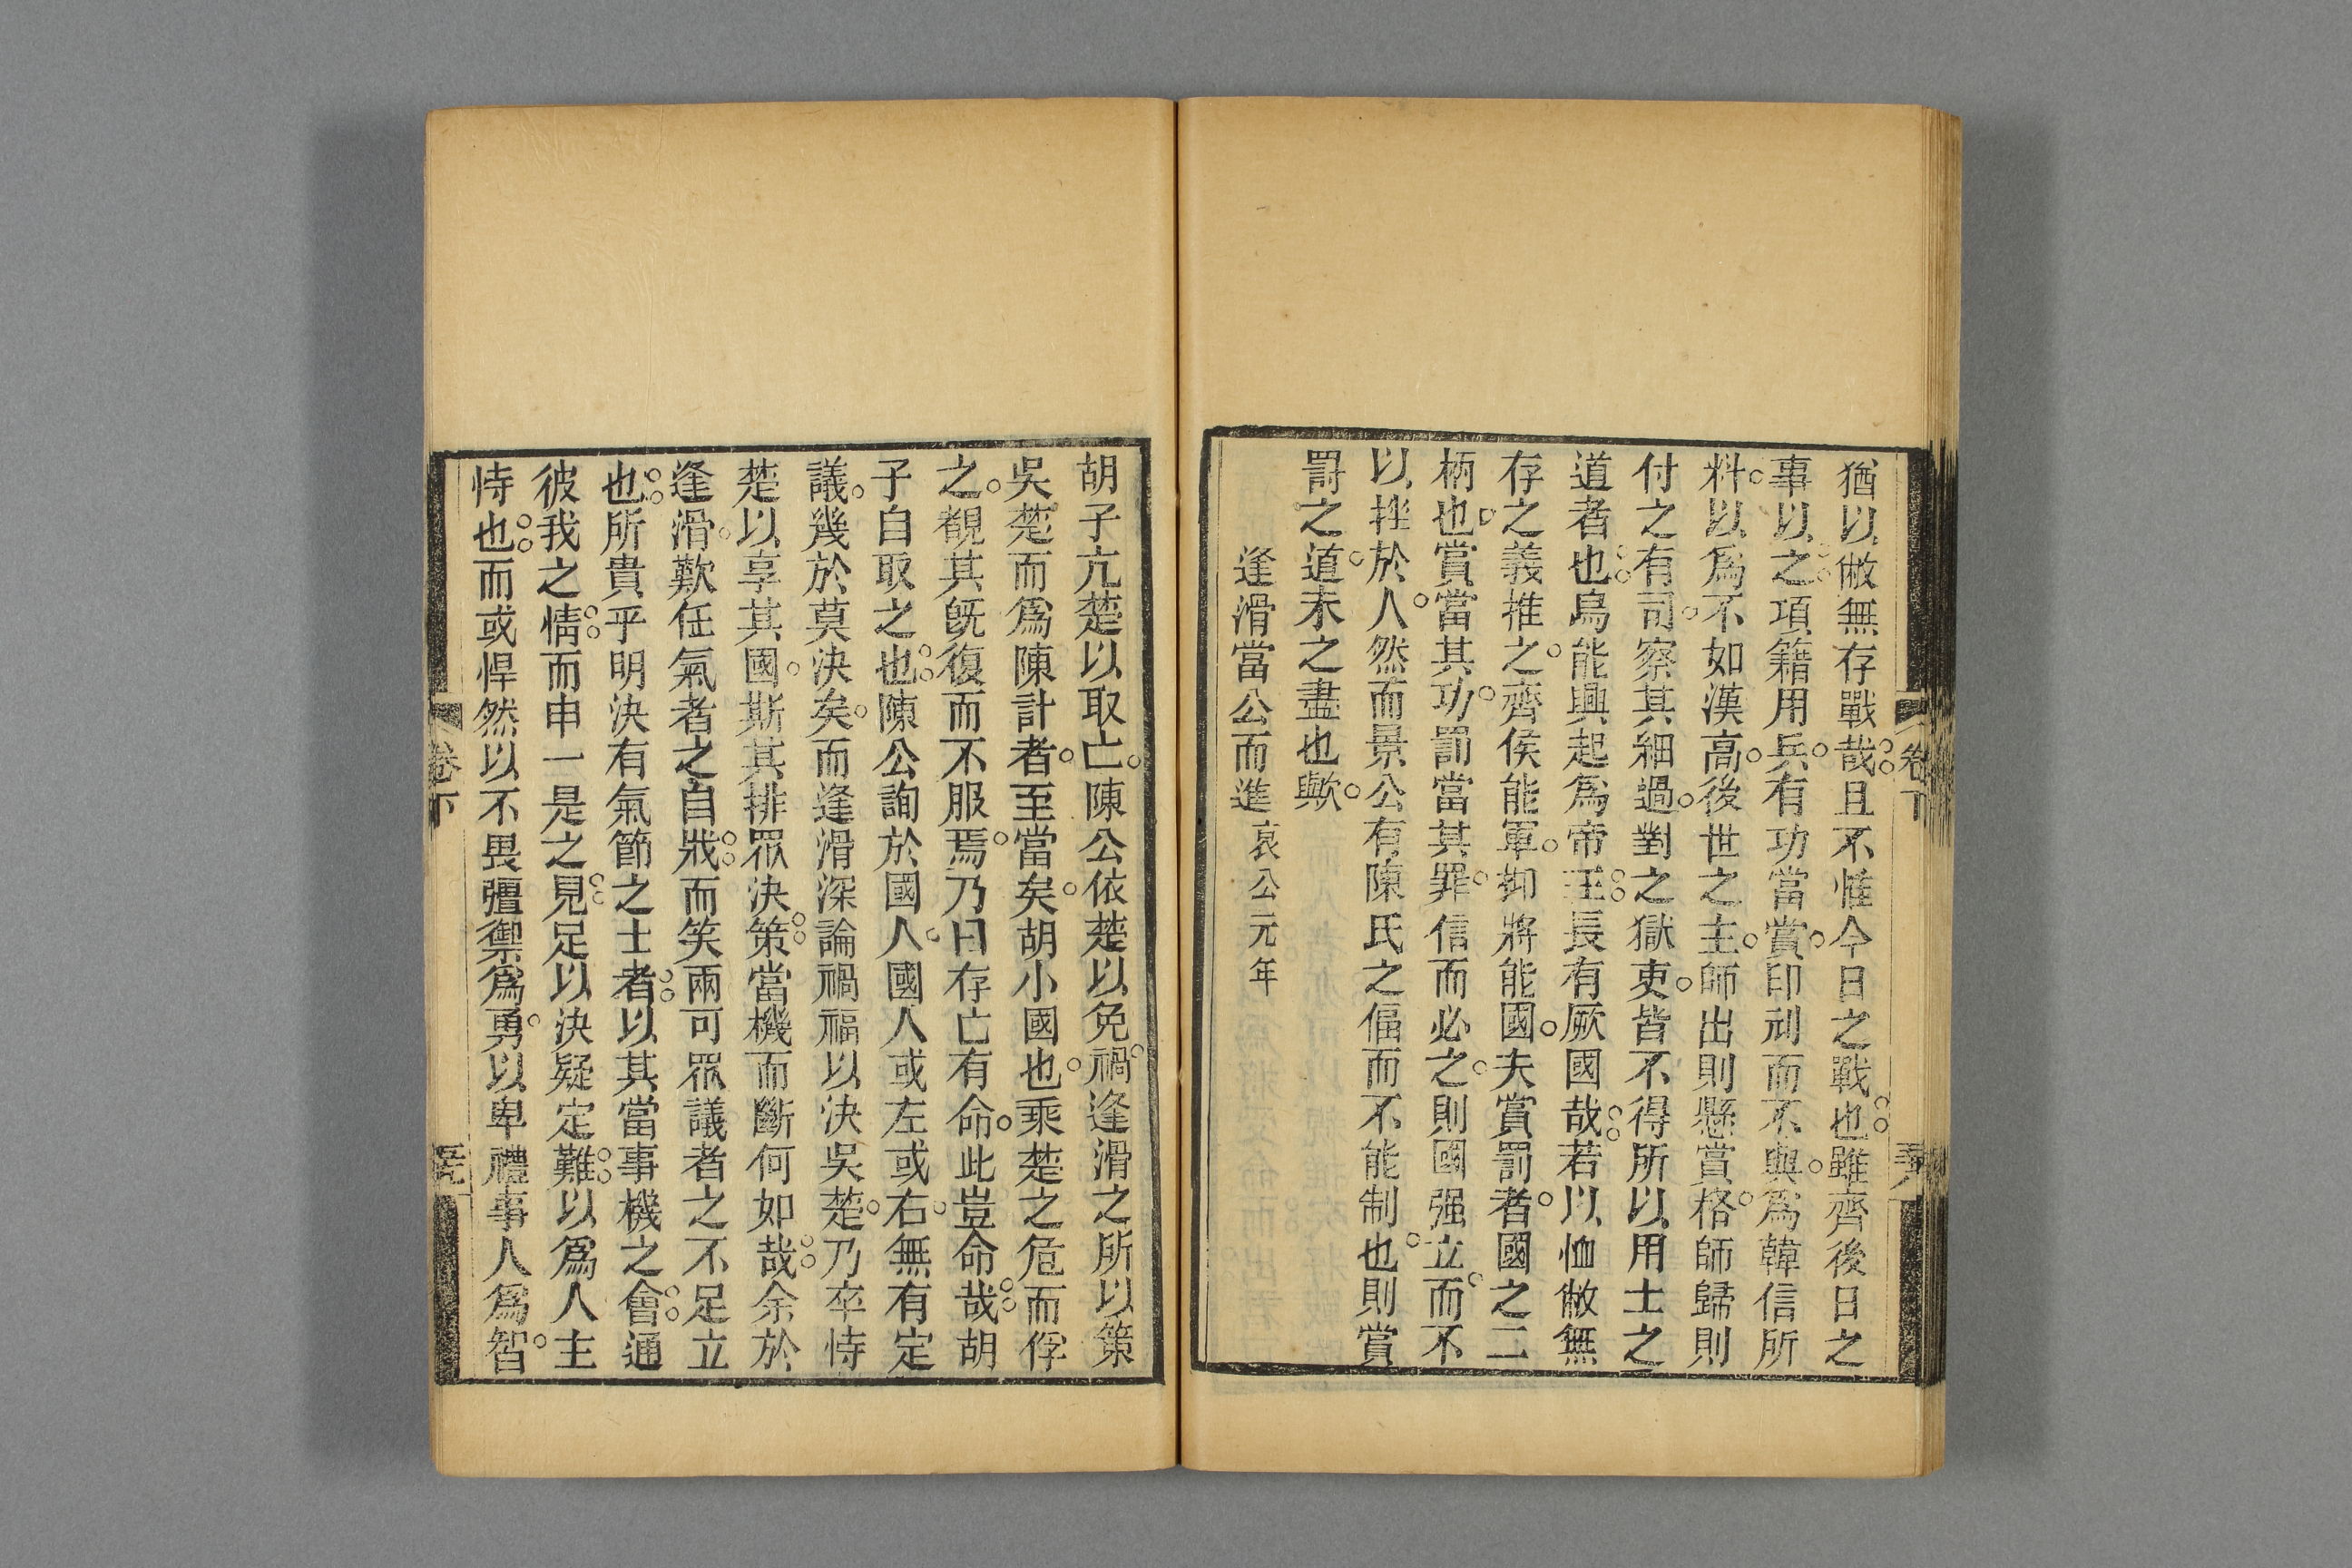 猶以敝無存戰哉且不惟今日之戰也雖齊後日之
事以之項籍用兵有功當賞印刓而不與爲韓信所
料以爲不如漢高後世之主師出則懸賞格師歸則
付之有司察其細過對之獄吏皆不得所以用士之
道者也烏能興起爲帝王長有厥國哉若以恤敝無
存之義推之齊侯能軍抑將能國夫賞罰者國之二
柄也賞當其功罰當其罪信而必之則國强立而不
以挫於人然而景公有陳氏之偪而不能制也則賞
罰之道未之盡也歟
逢滑當公而進 哀公元年
卷下
胡子亢楚以取亡陳公依楚以免禍逢滑之所以策
吳楚而爲陳計者至當矣胡小國也乘楚之危而俘
之覩其旣復而不服焉乃曰存亡有命此豈命哉胡
子自取之也陳公詢於國人國人或左或右無有定
議幾於莫決矣而逢滑深論禍福以決吳楚乃卒恃
楚以享其國斯其排眾決策當機而斷何如哉余於
逢滑歎任氣者之自戕而笑兩可眾議者之不足立
也所貴乎明決有氣節之士者以其當事機之會通
彼我之情而申一是之見足以決疑定難以爲人主
恃也而或悍然以不畏彊禦爲勇以卑禮事人爲智
卷下